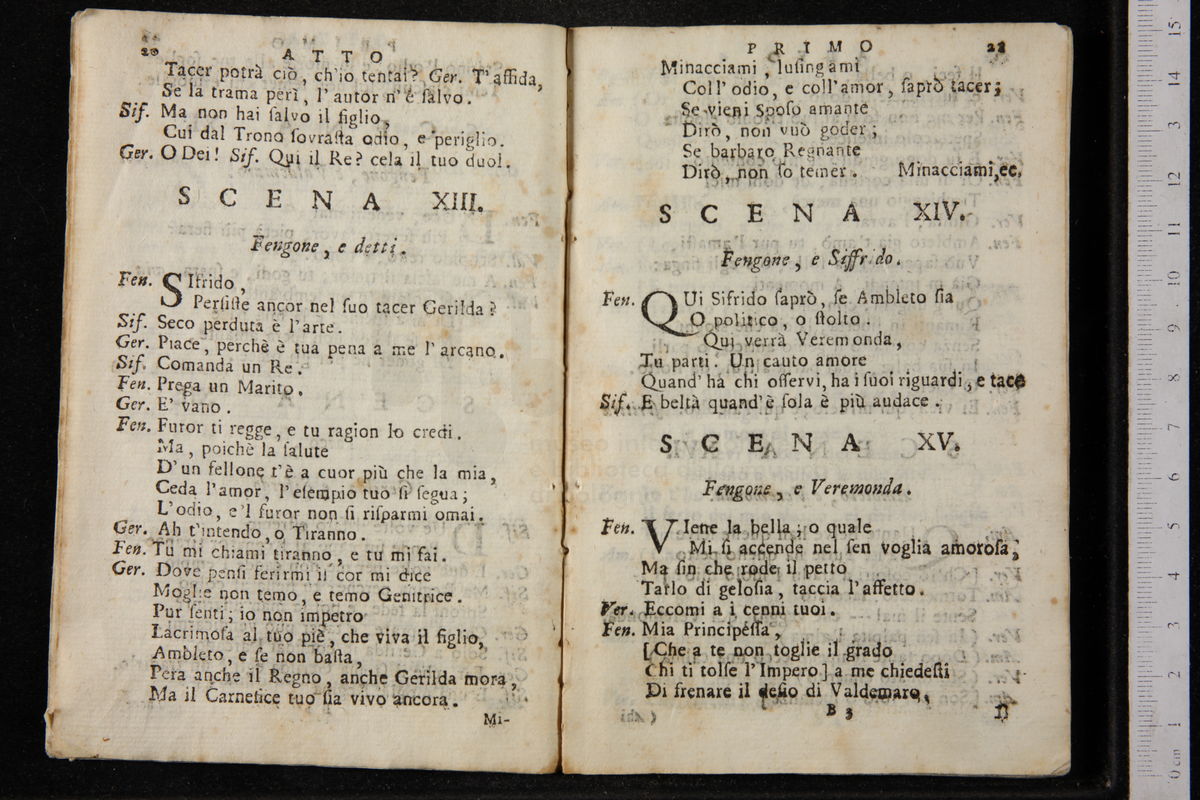 20
A T T O
Tacer potrà ciò, ch'io tentai? Ger. T'affida,
Se la trama perì, l'autor n'è ſalvo.
Sif. Ma non hai ſalvo il figlio,
Cui dal Trono ſovraſta odio, e periglio.
Ger. O Dei! Sif. Qui il Re? cela il tuo duol.
S C E N A XIII.
Fengone, e detti.
Fen. SIfrido,
Perſiſte ancor nel ſuo tacer Gerilda?
Sif. Seco perduta è l'arte.
Ger. Piace, perchè è tua pena a me l'arcano.
Sif. Comanda un Re.
Fen. Prega un Marito.
Ger. E' vano.
Fen. Furor ti regge, e tu ragion lo credi.
Ma, poichè la ſalute
D'un fellone t'è a cuor più che la mia,
Ceda l'amor, l'eſempio tuo ſi ſegua;
L'odio, e'l furor non ſi riſparmi omai.
Ger. Ah t'intendo, o Tiranno.
Fen. Tu mi chiami tiranno, e tu mi fai.
Ger. Dove penſi ferirmi il cor mi dice
Moglie non temo, e temo Genitrice.
Pur ſenti; io non impetro
Lacrimoſa al tuo piè, che viva il figlio,
Ambleto, e ſe non baſta,
Pera anche il Regno, anche Gerilda mora,
Ma il Carnefice tuo ſia vivo ancora.
Mi-
P R I M O
21
Minacciami, luſingami
Coll'odio, e coll'amor, ſaprò tacer;
Se vieni Spoſo amante
Dirò, non vuò goder;
Se barbaro Regnante
Dirò, non ſo temer. Minacciami, ec.
S C E N A XIV.
Fengone, e Siffrido.
Fen. QUi Sifrido ſaprò, ſe Ambleto ſia
O politico, o ſtolto.
Qui verrà Veremonda,
Tu parti. Un cauto amore
Quand'ha chi oſſervi, ha i ſuoi riguardi, e tace
Sif. E beltà quand'è ſola è più audace.
S C E N A XV.
Fengone, e Veremonda.
Fen. VIene la bella; o quale
Mi ſi accende nel ſen voglia amoroſa;
Ma ſin che rode il petto
Tarlo di geloſia, taccia l'affetto.
Ver. Eccomi a i cenni tuoi.
Fen. Mia Principeſſa,
[Che a te non toglie il grado
Chi ti tolſe l'Impero] a me chiedeſti
Di frenare il deſio di Valdemaro,
B 3
Il